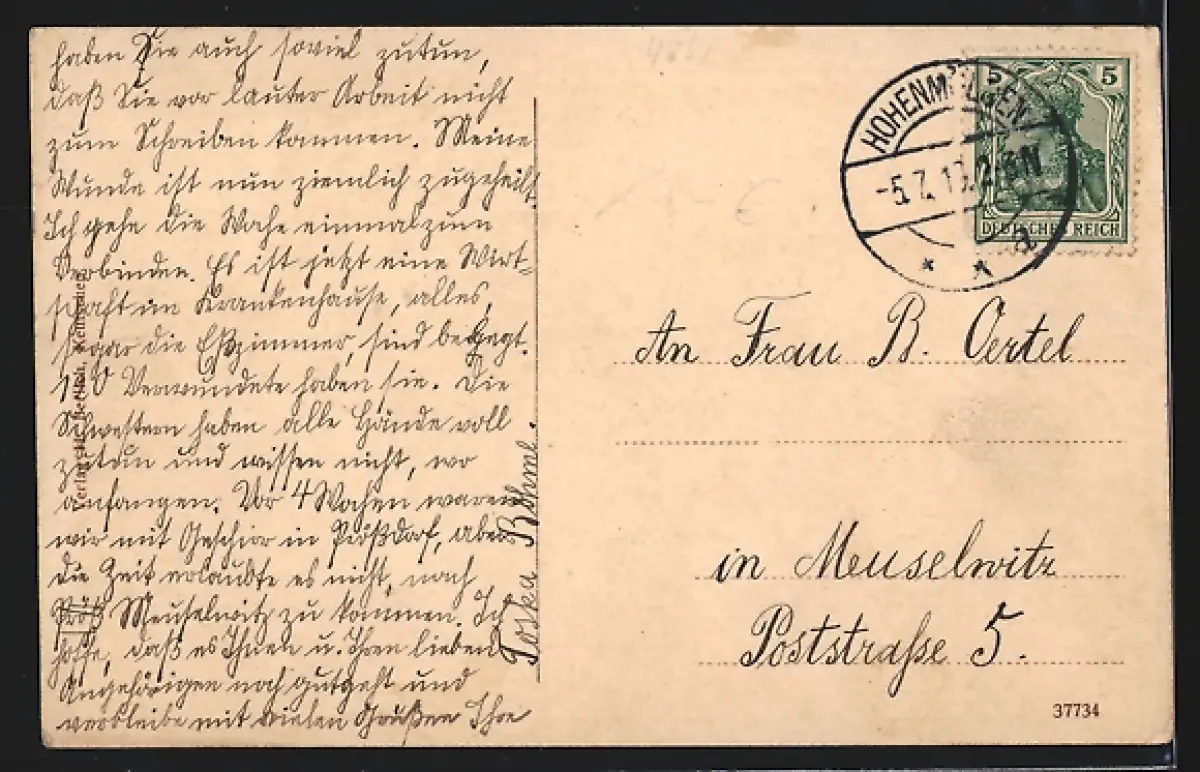 haben Sie auch soviel zutun,
daß Sie vor lauter Arbeit nicht
zum Schreiben kommen. Meine
Wunde ist nun ziemlich zugeheilt.
Ich gehe die Woche einmal zum
Verbinden. Es ist jetzt eine Wirt-
schaft im Krankenhause, alles,
sogar die Eßzimmer, sind belegt.
Verwundete haben sie. Die
Schwestern haben alle Hände voll
zutun und wissen nicht, wo
anfangen. Vor 4 Wochen waren
wir mit Geschirr in Prößdorf, aber
die Zeit erlaubte es nicht, nach
Meuselwitz zu kommen. Ich
hoffe, daß es Ihnen u. Ihren lieben
Angehörigen noch gut geht und
verbleibe mit vielen Grüßen Ihre
Böhml.
HOHENMÖLSEN
-5.7.17. 2-3N
d
5 5
DEUTSCHES REICH
An Frau B. Oertel
in Meuselwitz
Poststraße 5.
37734